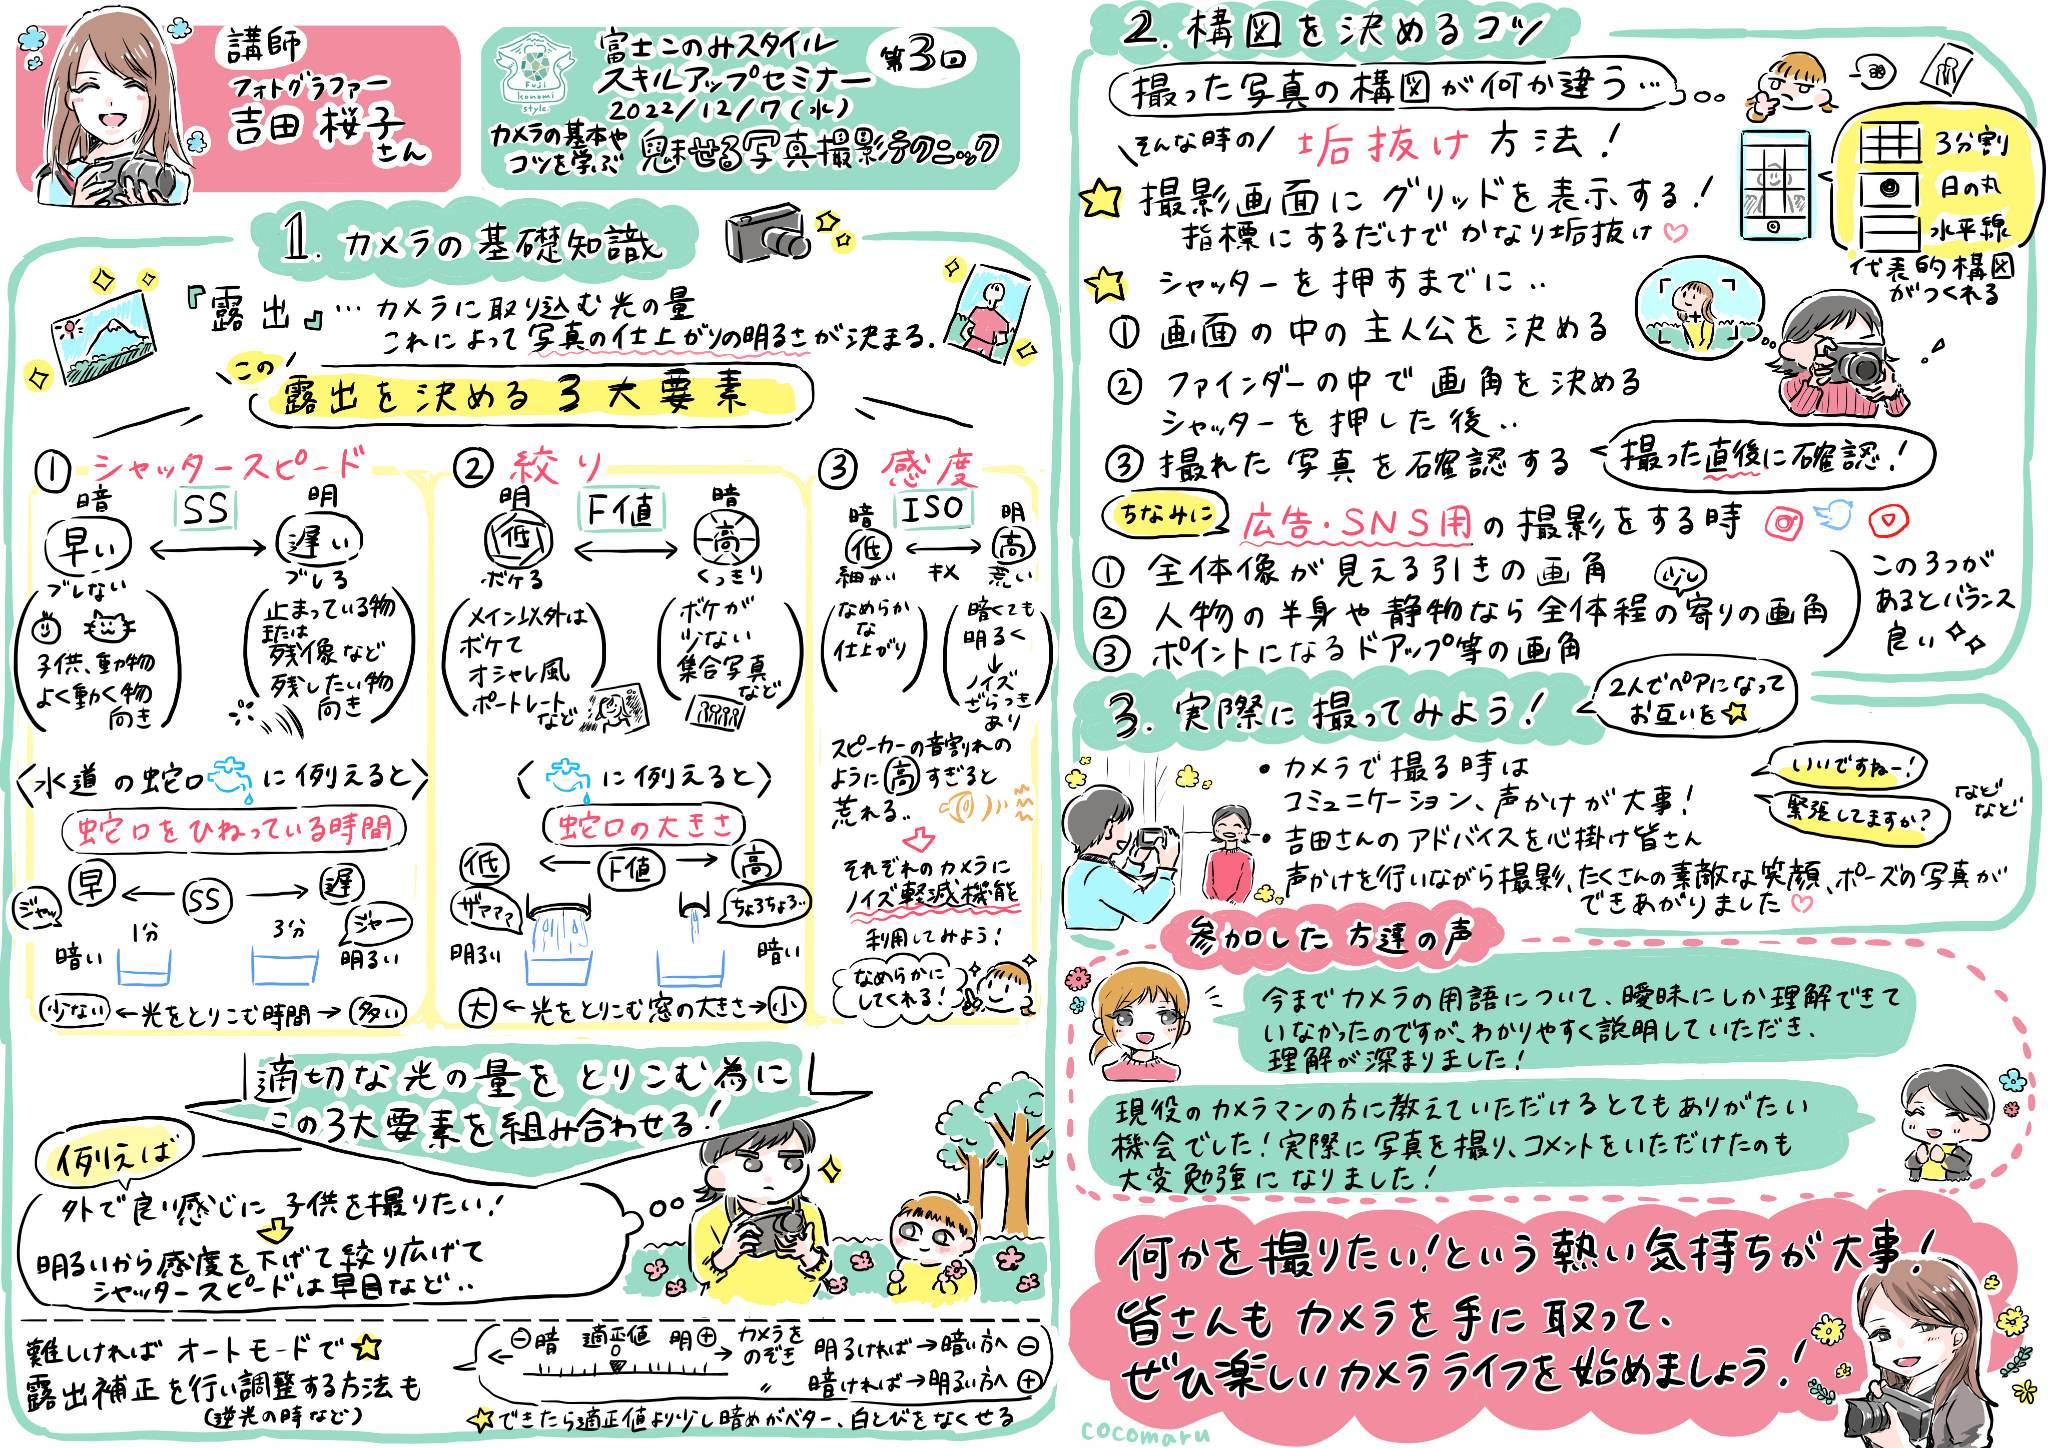 講師
フォトグラファー
吉田 桜子
さん
Fuji
konomi
style
富士このみスタイル
スキルアップセミナー
第3回
2022/12/7(水)
カメラの基本や
コツを学ぶ
魅せる写真撮影テクニック
1. カメラの基礎知識
『露出』… カメラに取り込む光の量
これによって写真の仕上がりの明るさが決まる.
この
露出を決める3大要素
① シャッタースピード
暗
SS
明
早い
遅い
ブレない
ブレる
子供、動物
よく動く物
向き
止まっている物
または
残像など
残したい物
向き
〈水道の蛇口に例えると〉
蛇口をひねっている時間
早
SS
遅
ジャッ
1分
3分
ジャー
暗い
明るい
少ない ← 光をとりこむ時間 → 多い
② 絞り
明
F値
暗
低
高
ボケる
くっきり
メイン以外は
ボケて
オシャレ風
ポートレート
など
ボケが
少ない
集合写真
など
〈に例えると〉
蛇口の大きさ
低
F値
高
ザァァァ
ちょろちょろ..
明るい
暗い
大 ← 光をとりこむ窓の大きさ → 小
③ 感度
暗
ISO
明
低
高
細かい
キメ
荒い
なめらか
な
仕上がり
暗くても
明るく
↓
ノイズ
ざらつき
あり
スピーカーの音割れの
ように高すぎると
荒れる..
それぞれのカメラに
ノイズ軽減機能
利用してみよう!
なめらかに
してくれる!
適切な光の量をとりこむ為に
この3大要素を組み合わせる!
例えば
外で良い感じに子供を撮りたい!
明るいから感度を下げて絞り広げて
シャッタースピードは早目など..
難しければオートモードで☆
露出補正を行い調整する方法も
(逆光の時など)
⊖暗 適正値 明⊕
カメラを
のぞき
明るければ→暗い方へ⊖
〃 暗ければ→明るい方へ⊕
☆できたら適正値より少し暗めがベター、白とびをなくせる
2. 構図を決めるコツ
撮った写真の構図が何か違う…
\そんな時の/ 垢抜け方法!
☆ 撮影画面にグリッドを表示する!
指標にするだけでかなり垢抜け♡
3分割
日の丸
水平線
代表的構図
がつくれる
☆ シャッターを押すまでに..
① 画面の中の主人公を決める
② ファインダーの中で画角を決める
シャッターを押した後..
③ 撮れた写真を確認する
撮った直後に確認!
ちなみに
広告・SNS用の撮影をする時
① 全体像が見える引きの画角
少し
② 人物の半身や静物なら全体程の寄りの画角
③ ポイントになるドアップ等の画角
この3つが
あるとバランス
良い
3. 実際に撮ってみよう!
2人でペアになって
お互いを☆
・カメラで撮る時は
コミュニケーション、声かけが大事!
いいですねー!
緊張してますか?
などなど
・吉田さんのアドバイスを心掛け皆さん
声かけを行いながら撮影、たくさんの素敵な笑顔、ポーズの写真が
できあがりました♡
参加した方達の声
今までカメラの用語について、曖昧にしか理解できて
いなかったのですが、わかりやすく説明していただき、
理解が深まりました!
現役のカメラマンの方に教えていただけるとてもありがたい
機会でした!実際に写真を撮り、コメントをいただけたのも
大変勉強になりました!
何かを撮りたい!という熱い気持ちが大事!
皆さんもカメラを手に取って、
ぜひ楽しいカメラライフを始めましょう!
cocomaru